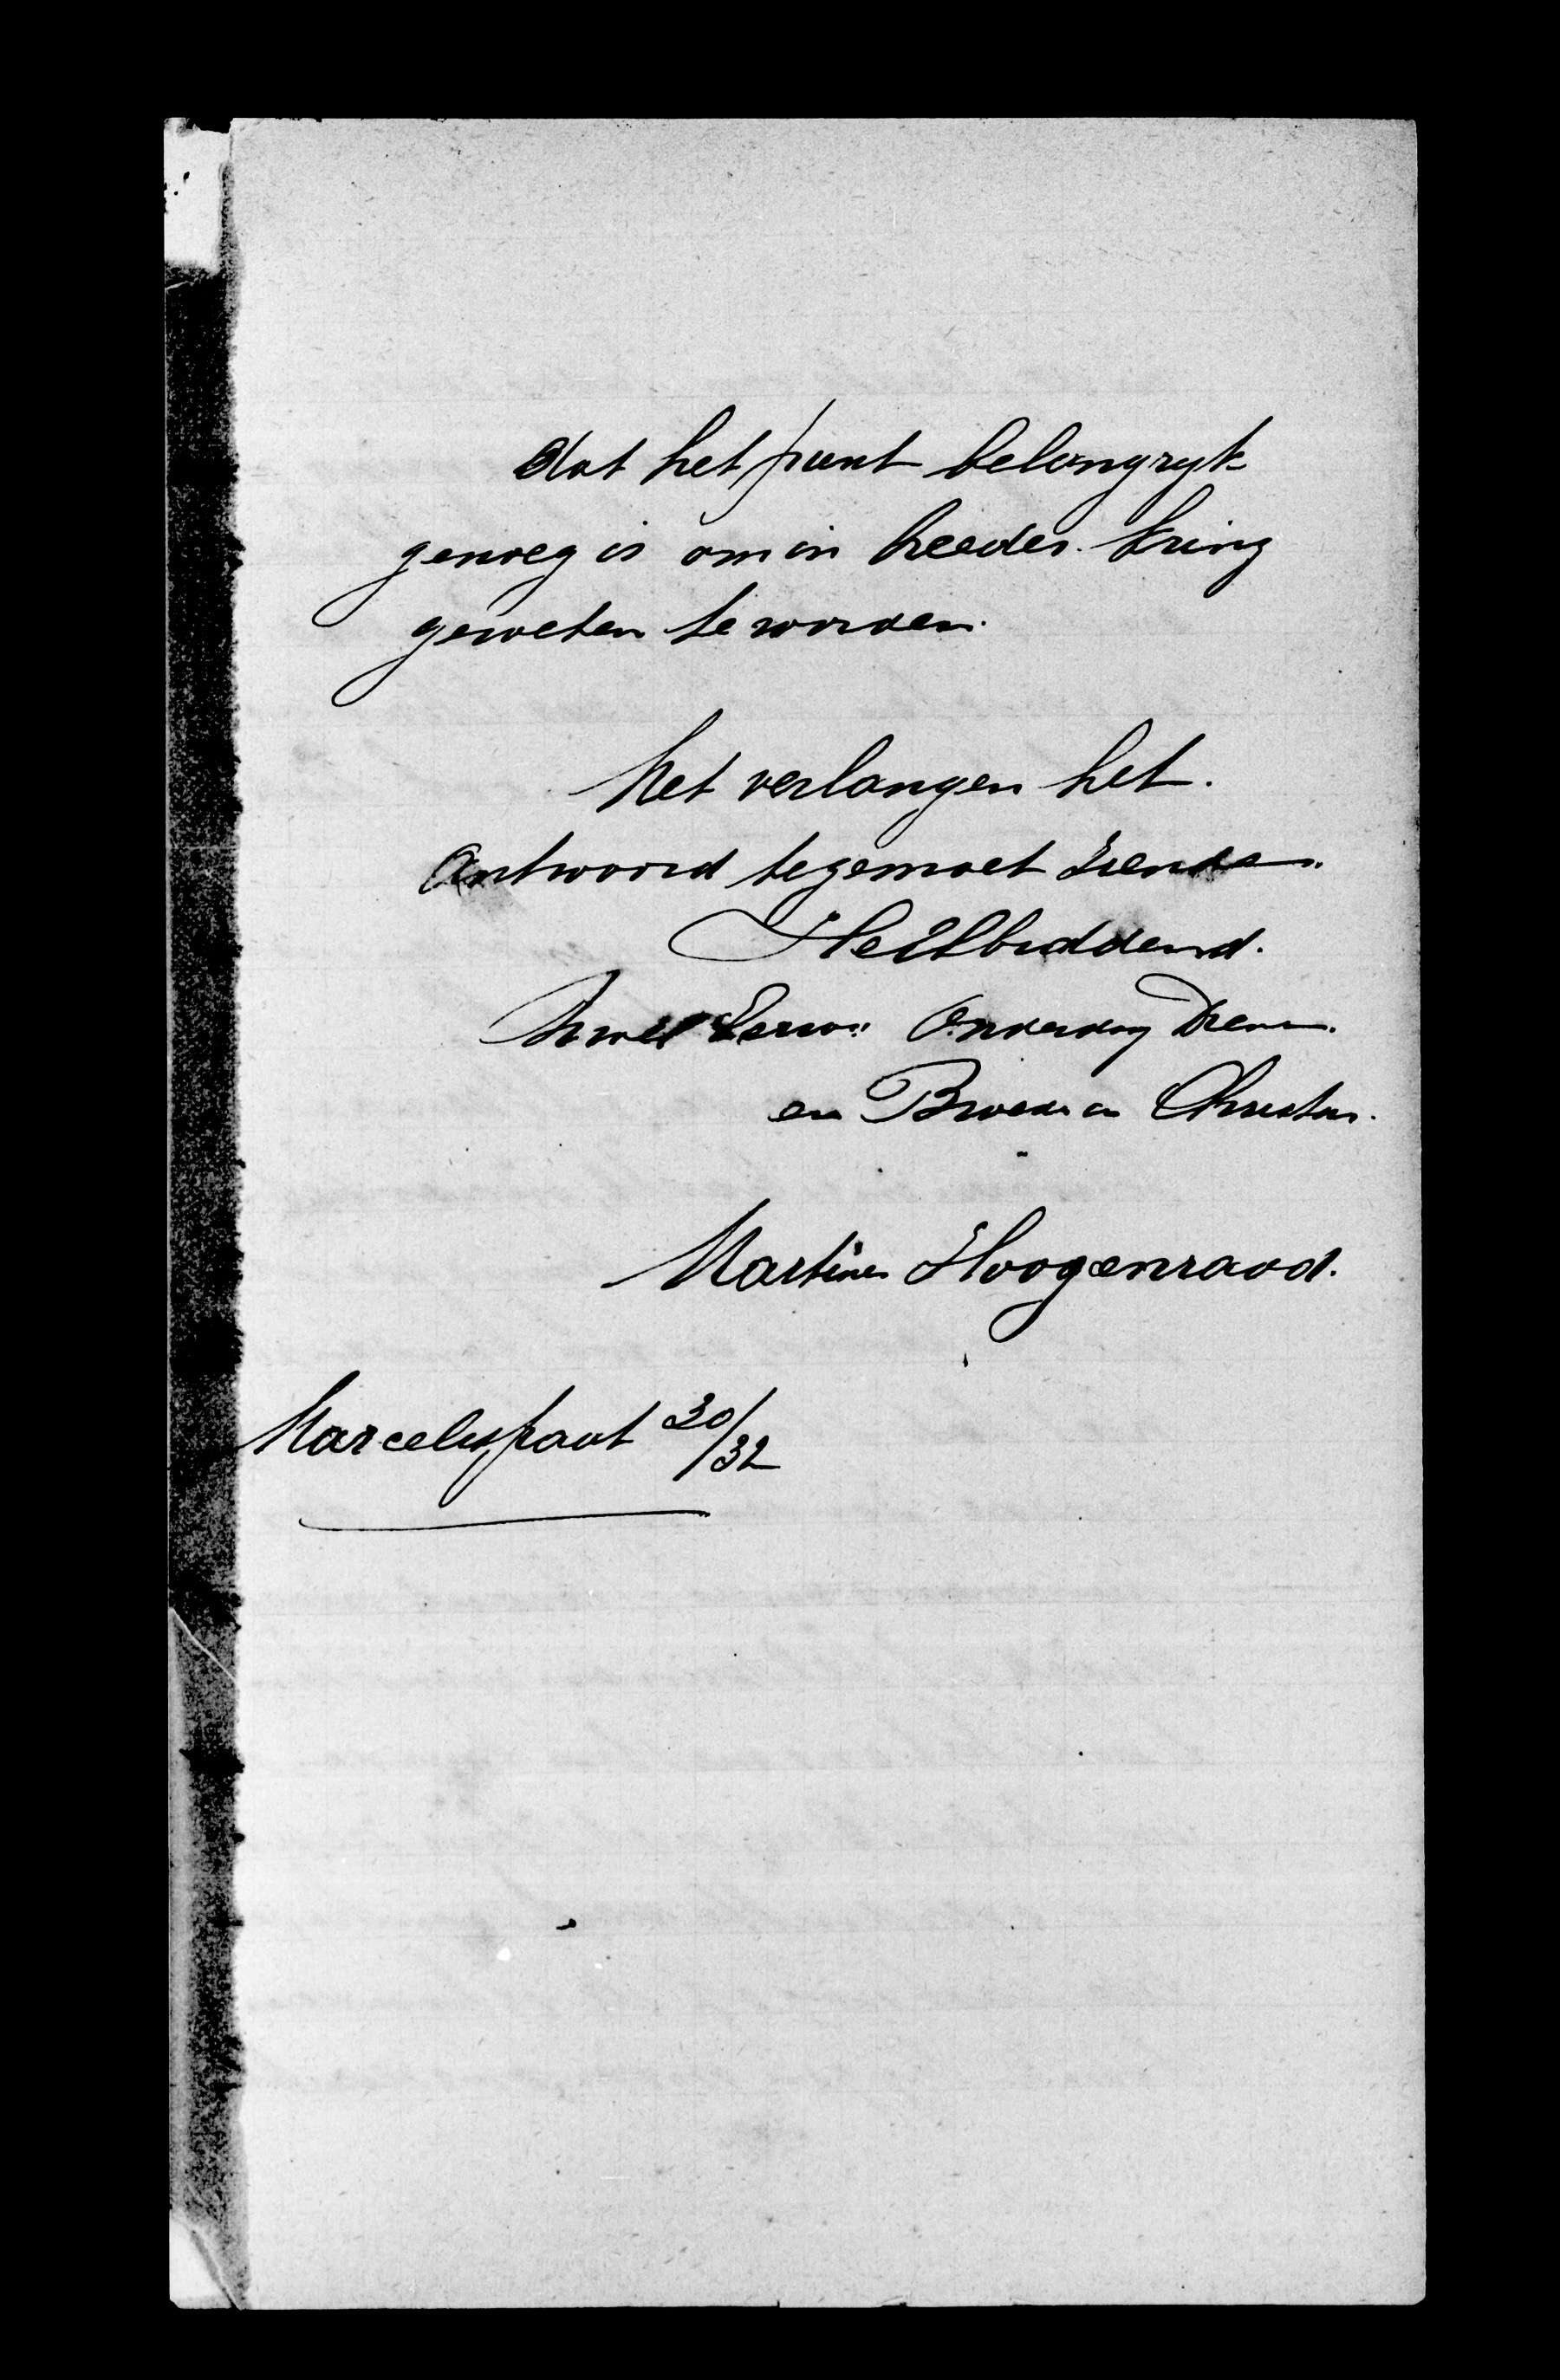 dat het punt belangryk
genoeg is om in breeder kring
geweten te worden.
Met verlangen het
Antwoord tegemoet ziende.
Heilbiddend.
Uwel Eerw: Onderdang Dien.
en Broeder in Christus.
Martinus Hoogenraad.
Marcelispaat 30/32